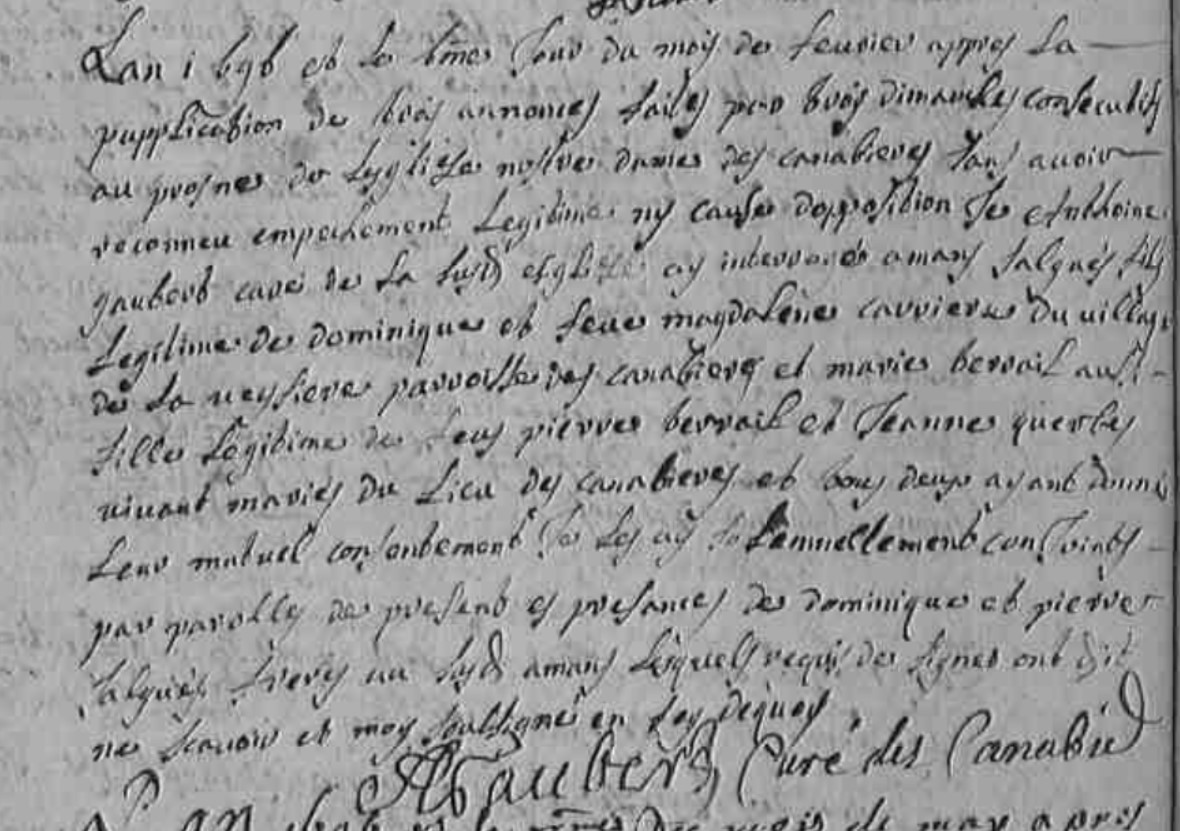 Lan i696 et le 6me Jour du moys de feuvrier appres La
pupplication de trois annonces faites par trois dimanches consecutifs
au prosnes de Lesglise nostre dames des canabieres sans avoir
reconneu empechement Legitime ny cause dopposition Je Anthoine
gaubert curé de La susd esglise ay interrogés amans salgués fils
Legitime de dominique et feue magdaleine carrieres du village
de La veyssiere parroisse des canabieres et marie berrail aussi
fille Légitime de feus pierres berrail et Jeanne querbes
vivant mariés du Lieu des canabieres et tous deux ayant donné
Leur mutuel consentement Je Les ay solemnellement conjoints
par parolles de present es presances de dominique et pierre
salgués freres au susd amans Lesquels requis de signer ont dit
ne scavoir et moy soussigné en foy dequoy
AGaubert Curé des Canabie
Lan 1696 et le du mois de may apres